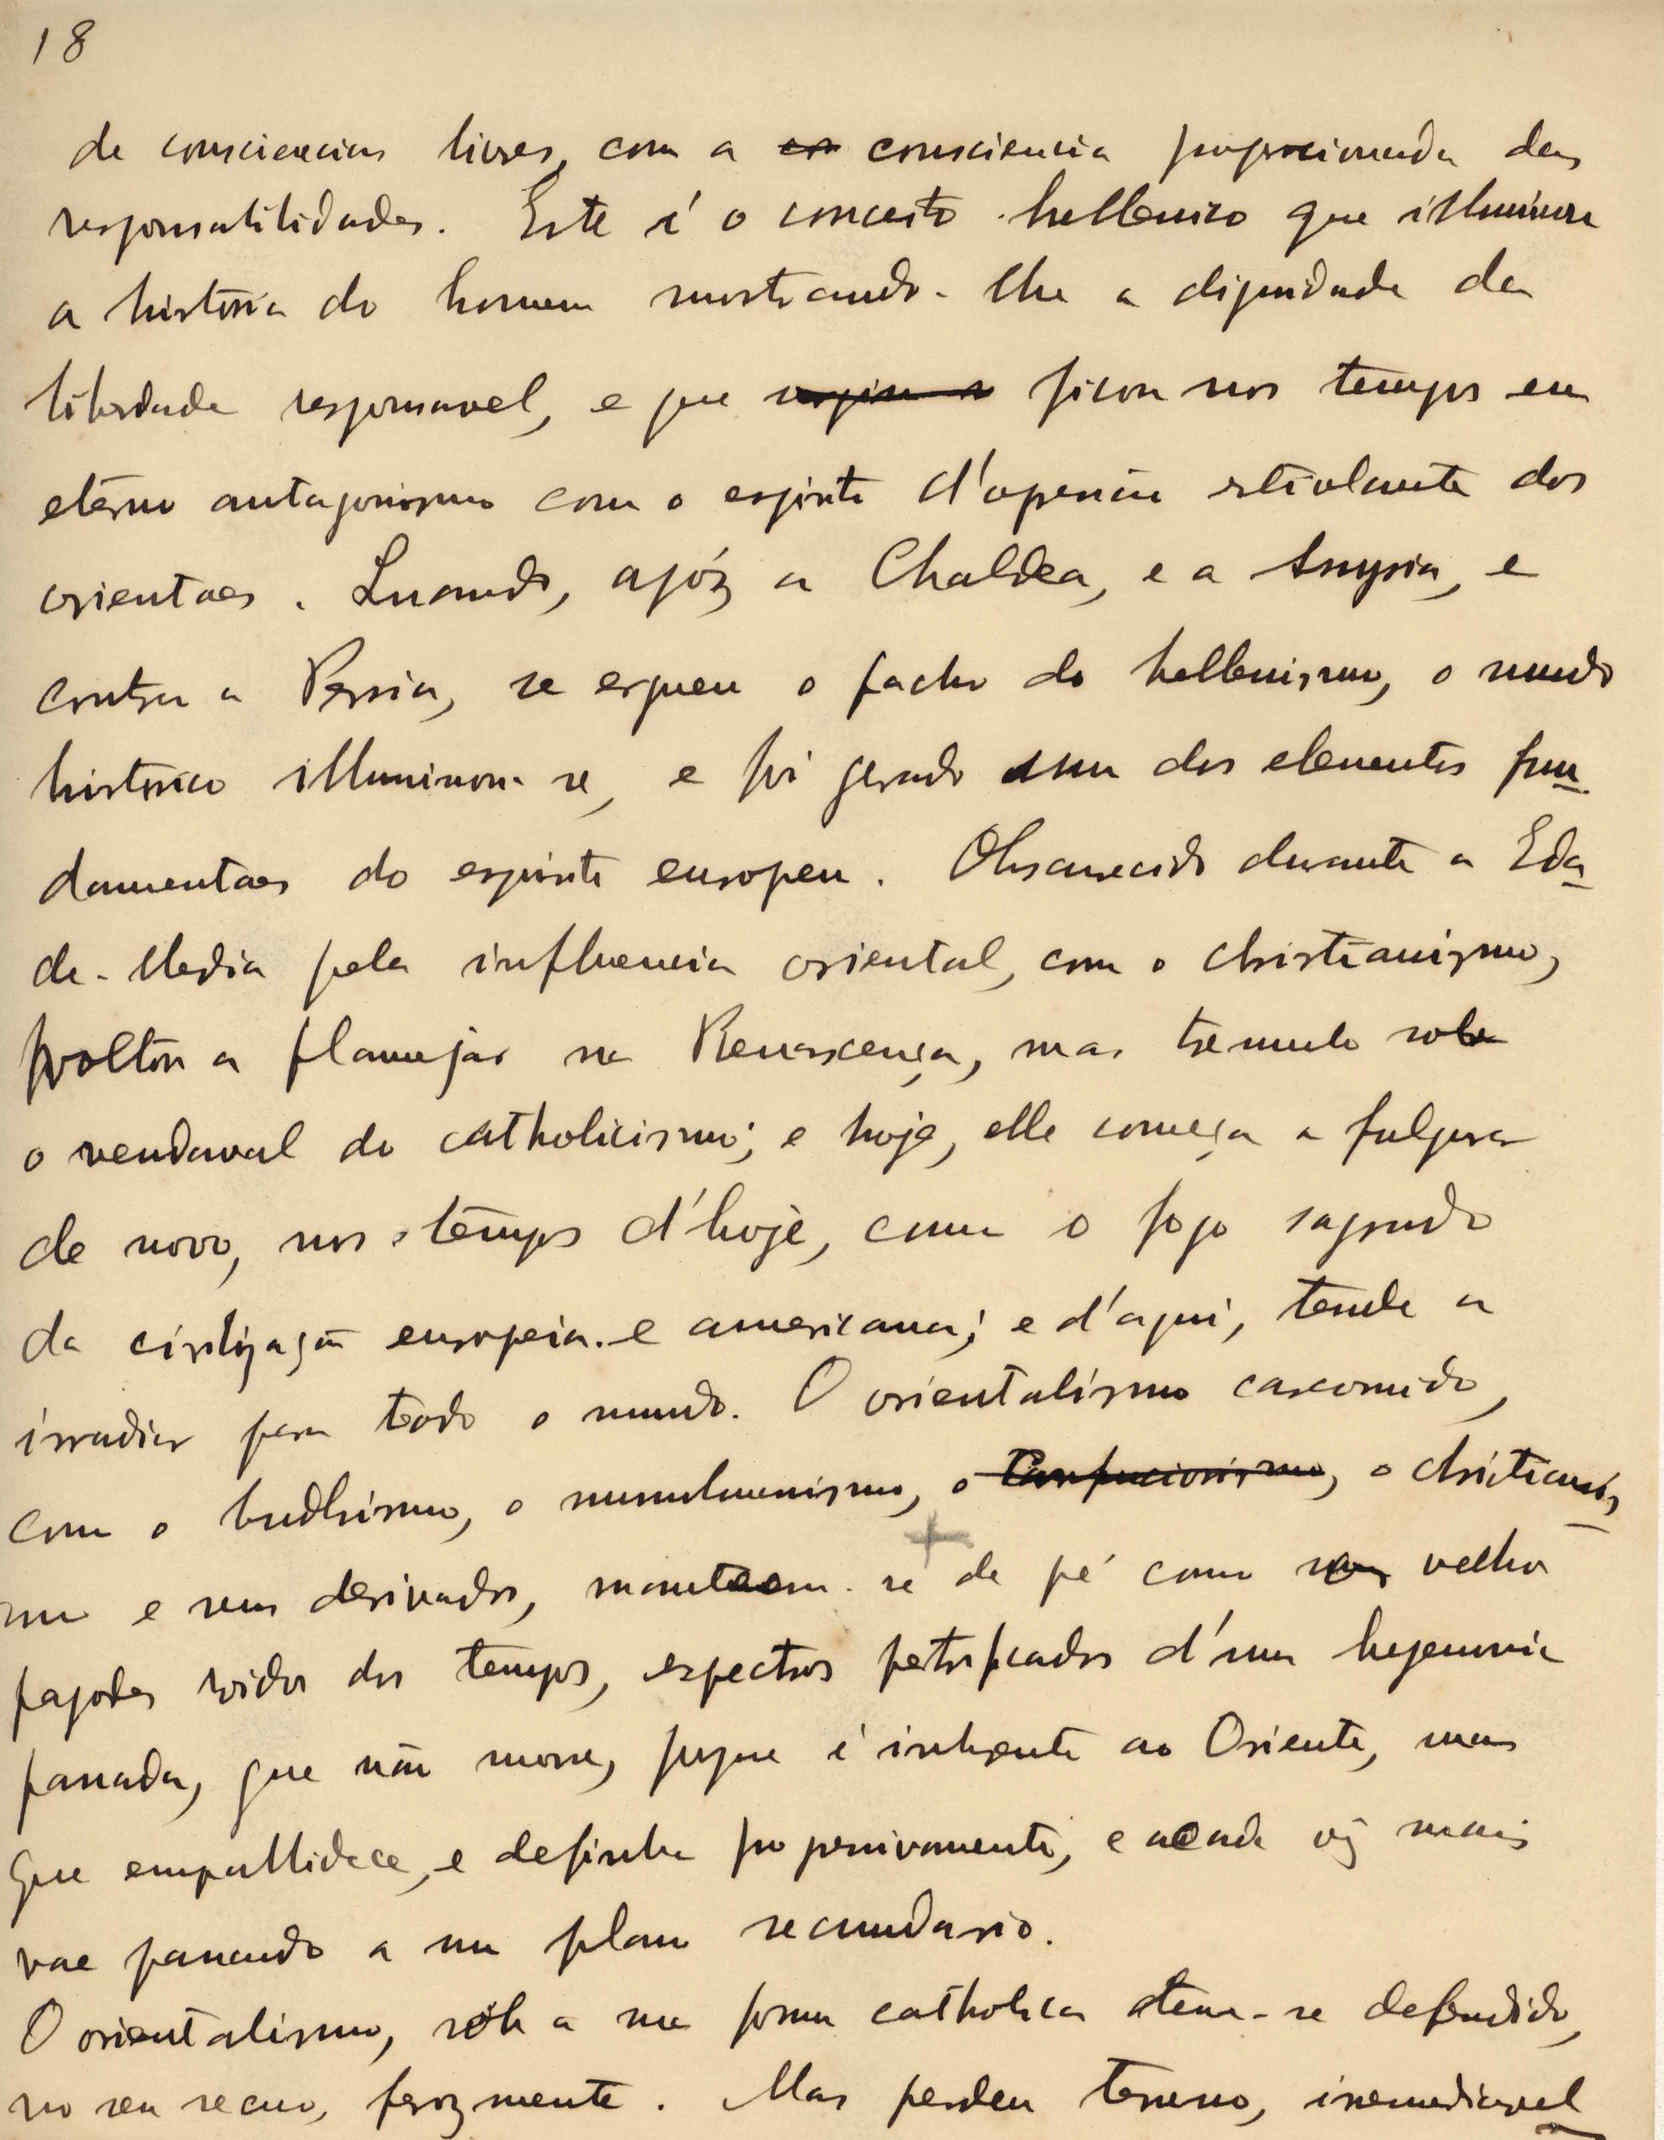 18
de consciencias livres, com a consciencia proporcionada das
responsabilidades. Este é o conceito hellenico que illuminou
a historia do homem mostrando-lhe a dignidade da
liberdade responsavel, e que ficou nos tempos em
eterno antagonismo com o espirito d'opressão estiolante dos
orientaes. Quando, após a Chaldea, e a Assyria, e
contra a Persia, se ergueu o facho do hellenismo, o mundo
historico illuminou-se, e foi gerado um dos elementos fun-
damentaes do espirito europeu. Obscurecido durante a Eda-
de-Media pela influencia oriental, com o christianismo,
voltou a flamejar na Renascença, mas tremulo sob
o vendaval do catholicismo; e hoje, elle começa a fulgurar
de novo, nos tempos d'hoje, como o fogo sagrado
da civilização europeia e americana; e d'aqui, tende a
irradiar para todo o mundo. O orientalismo carcomido,
com o budhismo, o musulmanismo, o Confucionismo, o christianis-
mo e seus derivados, manteem-se de pé como velhos
pagodes roidos dos tempos, espectros petrificados d'uma hegemonia
passada, que não morre, porque é inherente ao Oriente, mas
que empallidece, e definha progressivamente, e a cada vez mais
vae passando a um plano secundario.
O orientalismo, sob a sua forma catholica tem-se defendido,
no seu recuo, ferozmente. Mas perdeu terreno, irremediavel-